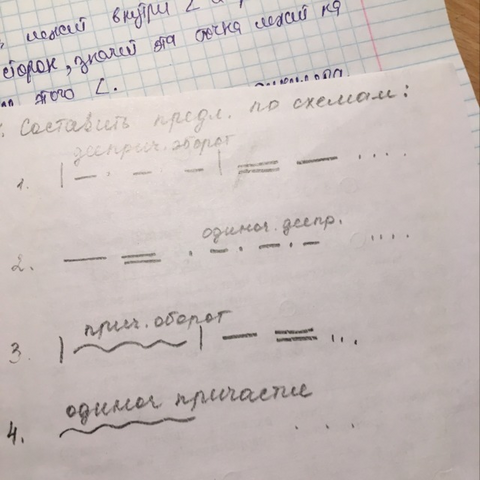 лежит внутри ∠
сторон, значит эта точка лежит на
этого ∠.
Составить предл. по схемам:
дееприч. оборот
1.
одиноч. деепр.
2.
прич. оборот
3.
одиноч причастие
4.